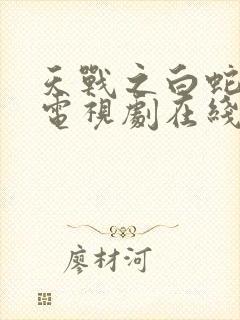 天戰之白蛇
電視劇在綫
廖材河